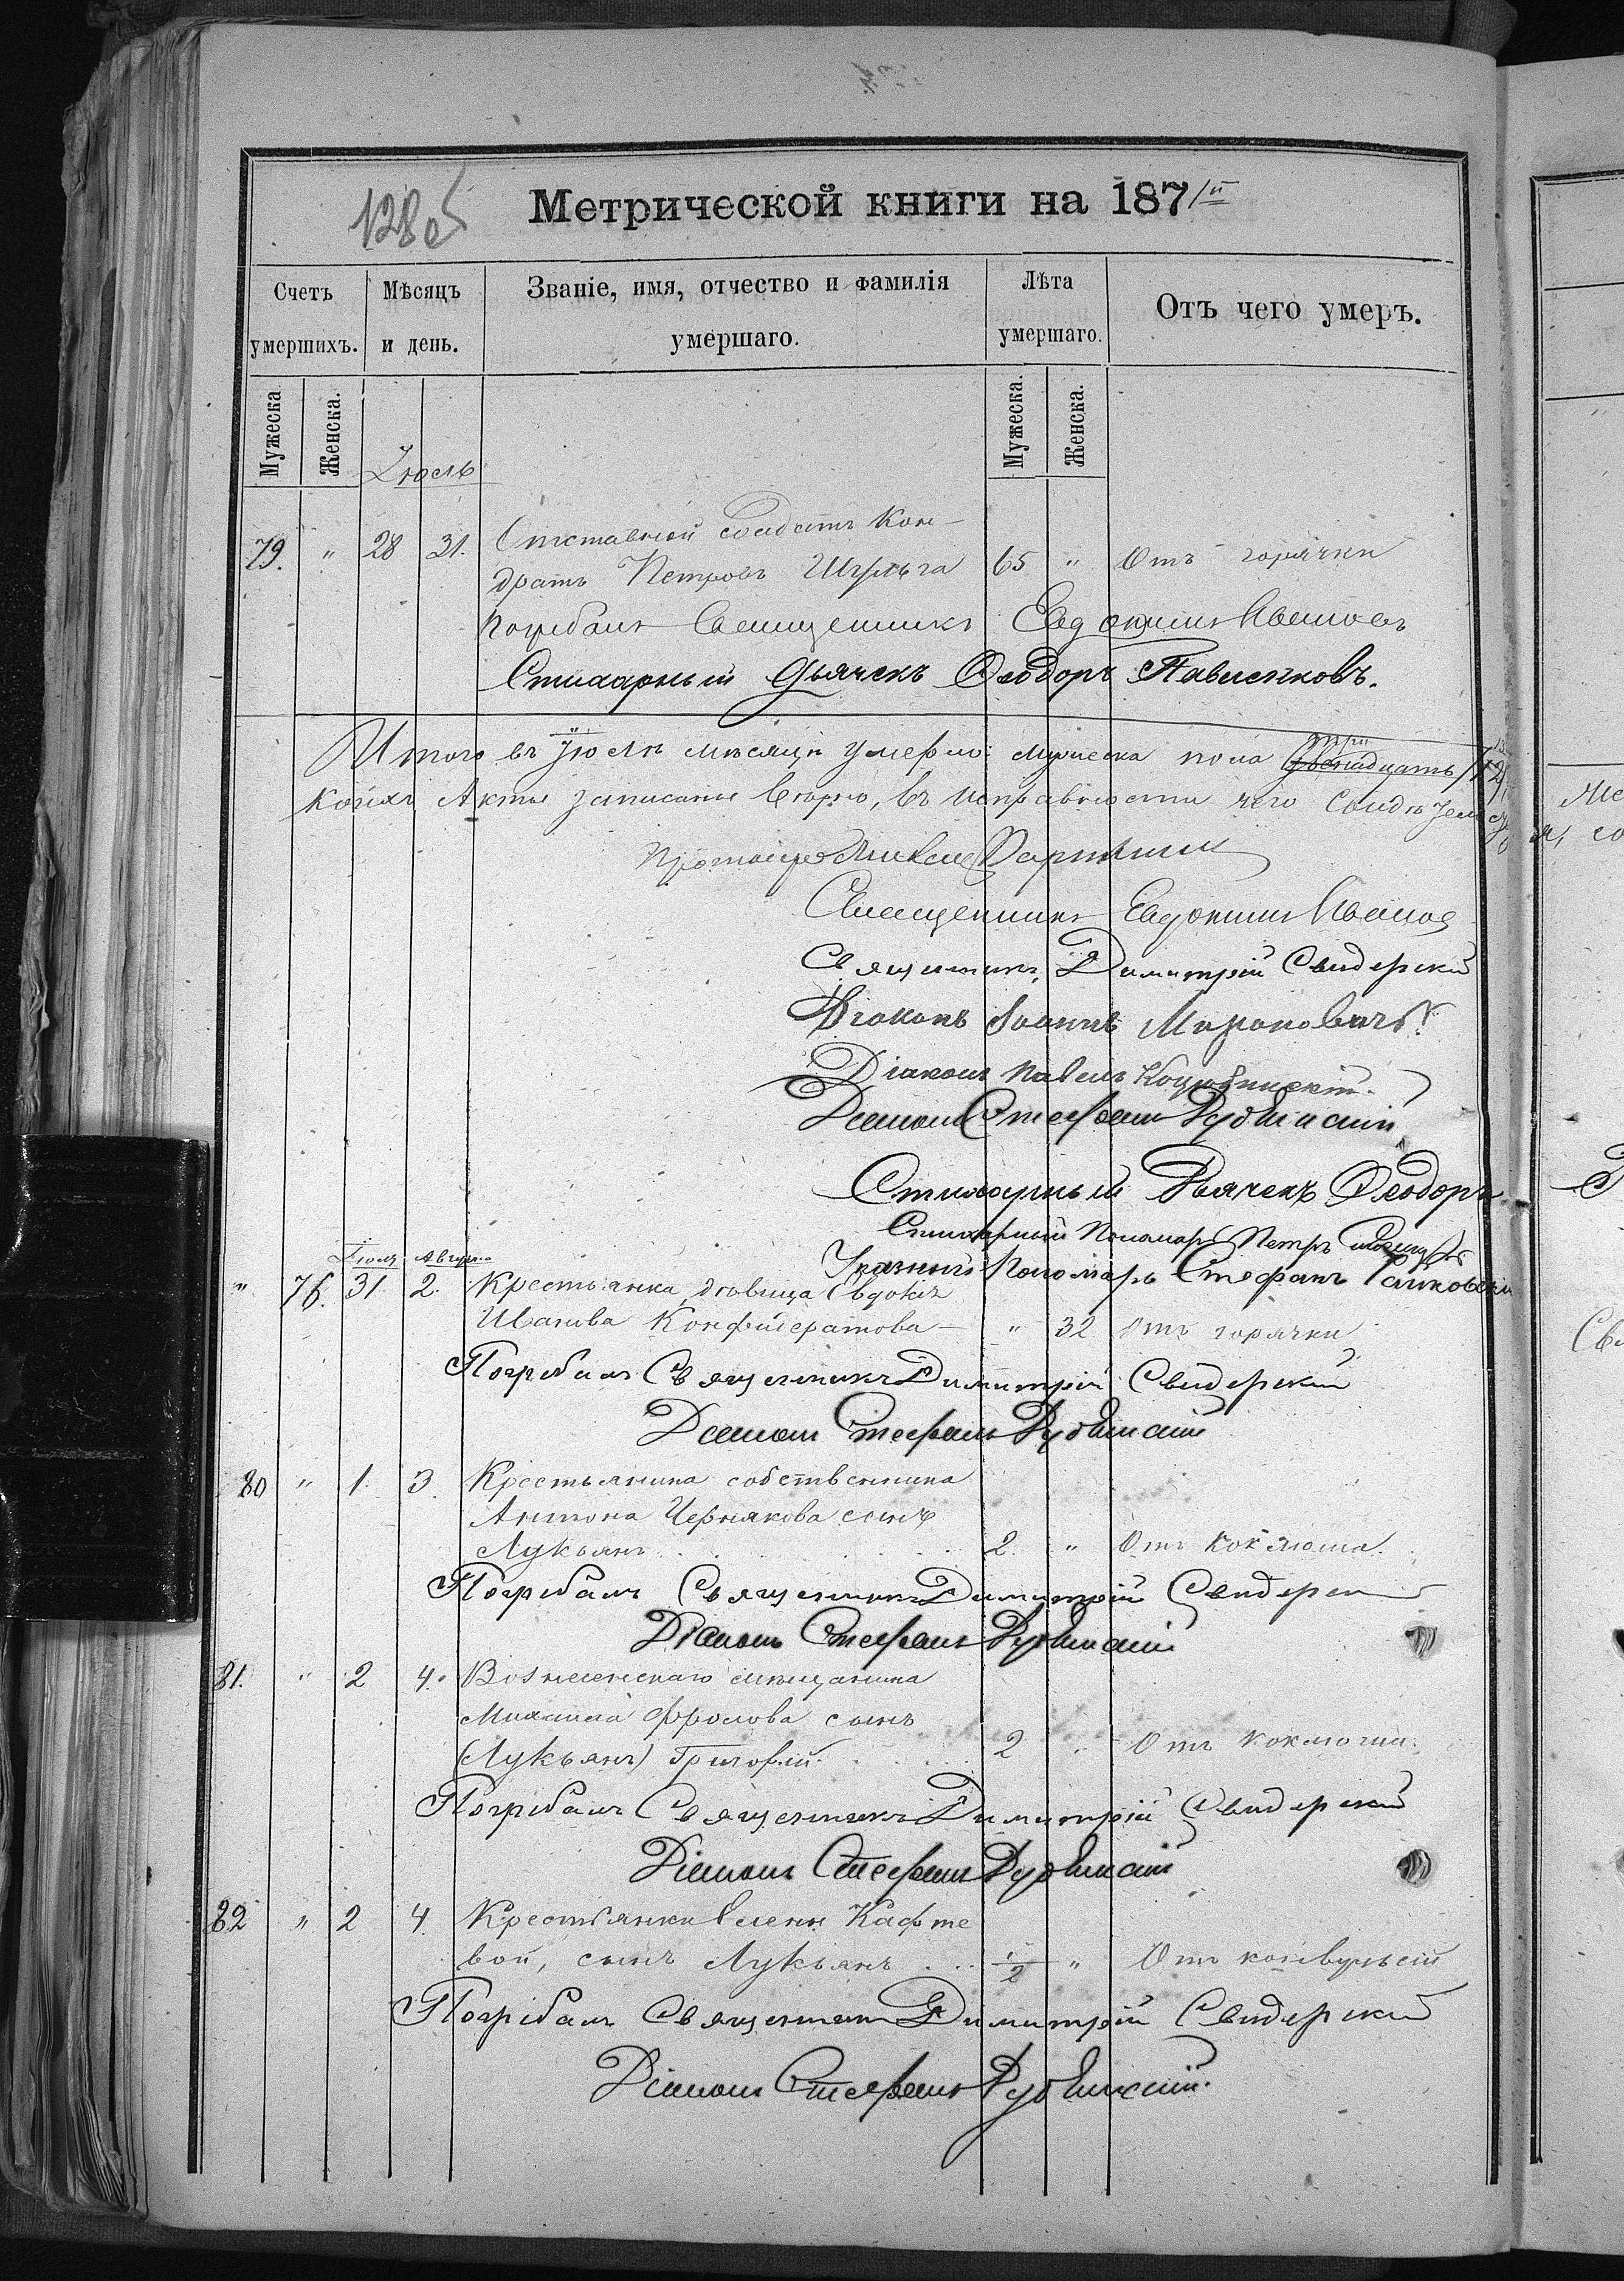 128об
Метрической книги на 1871й
Счетъ умершихъ.
Мѣсяцъ и день.
Званіе, имя, отчество и фамилія умершаго.
Лѣта умершаго.
Отъ чего умеръ.
Мужеска
Женска.
Мужеска.
Женска.
Іюль
79. " 28 31. Отставной солдатъ Кон-
дратъ Петровъ 65 " Отъ горячки
Погребалъ Священникъ Евдокимъ Ивановъ
Стихарный Дьячекъ Ѳеодоръ Павленковъ.
Итого въ Іюлѣ мѣсяцѣ умерло: мужеска пола
коихъ Акты записаны вѣрно, въ исправности чего
Протоіерей
Священникъ Евдокимъ Ивановъ
Священникъ Димитрій Свидерскій
Діаконъ Іоаннъ Мироновичъ.
Діаконъ Павелъ Коцюбинскій.
Діаконъ Стефанъ
Стихарный Дьячекъ Ѳеодоръ
Стихарный Пономарь Петръ
Указный Пономарь Стефанъ
Іюля Август.
" 76. 31 2. Крестьянка, дѣвица Евдокія
Иванова Конфидератова — " 32 Отъ горячки
Погребалъ Священникъ Димитрій Свидерскій
Діаконъ Стефанъ
80 " 1. 3 Крестьянина собственника
Антона Чернякова сынъ
Лукьянъ 2. " Отъ коклюша.
Погребалъ Священникъ Димитрій Свидерскій
Діаконъ Стефанъ
81. " 2 4. Вознесенскаго мѣщанина
Михаила Фролова сынъ
(Лукьянъ) Григорій. 2 " Отъ коклюша.
Погребалъ Священникъ Димитрій Свидерскій
Діаконъ Стефанъ
82 " 2 4. Крестьянки Елены Кафте
вой, сынъ Лукьянъ . . 1/2 " Отъ конвульсій
Погребалъ Священникъ Димитрій Свидерскій
Діаконъ Стефанъ